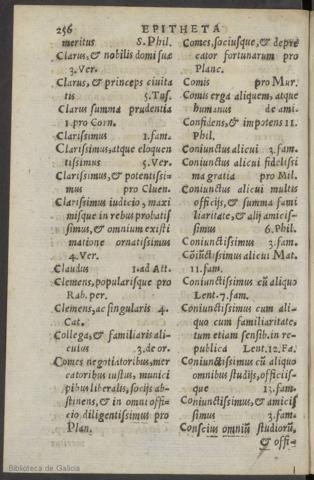 256 EPITHETA
meritus S. Phil.
Clarus, & nobilis domi suæ
3. Ver.
Clarus, & princeps ciuita
tis 5. Tus.
Clarus summa prudentia
1. pro Corn.
Clarissimus 1. fam.
Clarissimus, atque eloquen
tissimus 5. Ver.
Clarissimus, & potentissi-
mus pro Cluen.
Clarissimus iudicio, maxi
misque in rebus probatis
simus, & omnium existi
matione ornatissimus
4. Ver.
Claudus 1. ad Att.
Clemens, popularisque pro
Rab. per.
Clemens, ac singularis 4.
Cat.
Collega, & familiaris ali-
cuius 3. de or.
Comes negotiatoribus, mer
catoribus iustus, munici
pibus liberalis, socijs ab-
stinens, & in omni offi-
cio diligentissimus pro
Plan.
Comes, sociusque, & depre
cator fortunarum pro
Planc.
Comis pro Mur.
Comis erga aliquem, atque
humanus de ami.
Confidens, & impotens 11.
Phil.
Coniunctus alicui 3. fam.
Coniunctus alicui fidelissi
ma gratia pro Mil.
Coniunctus alicui multis
officijs, & summa fami
liaritate, & alij amicis-
simus 6. Phil.
Coniunctissimus 3. fam.
Cõiũctissimus alicui Mat.
11. fam.
Coniunctissimus cũ aliquo
Lent. 7. fam.
Coniunctissimus cum ali-
quo cum familiaritate,
tum etiam sensib. in re-
publica Lent. 12. Fa.
Coniunctissimus cũ aliquo
omnibus studijs, officijs-
que 13. fam.
Coniunctissimus, & amicis
simus 3. fam.
Conscius omniũ studiorũ,
& offi-
Biblioteca de Galicia